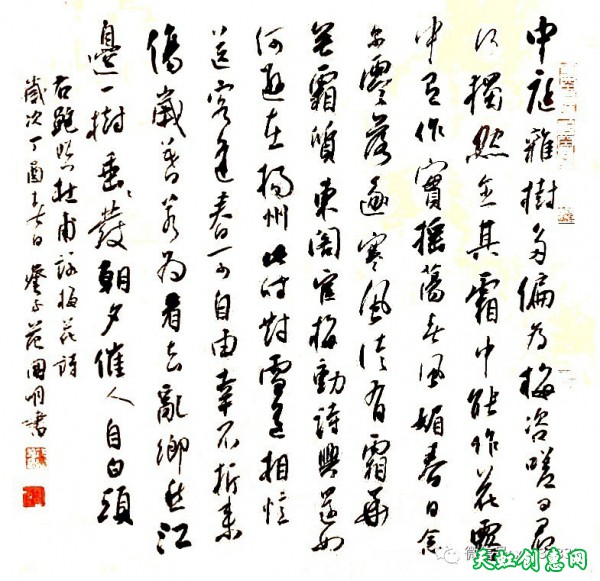 中庭雜樹多偏為梅咨嗟问君
何獨然念其霜中能作花露
中能作實搖蕩春風媚春日念
尔零落逐寒風徒有霜華
無霜質東閣官梅動詩興還如
何遜在揚州此時對雪遙相憶
送客逢春可自由幸不折來
傷歲暮若為看去亂鄉愁江
邊一樹垂垂發朝夕催人自白頭
右鮑照杜甫詠梅花詩
歲次丁酉春日范國明書
天虹创意网